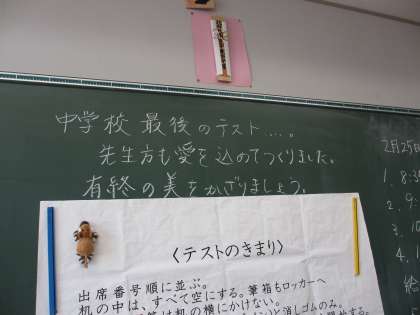 中学校 最後のテスト…。
先生方も愛を込めてつくりました。
有終の美をかざりましょう。
2月25日
1. 8:3
2. 9:
3. 10
4. 1
〈テストのきまり〉
出席番号順に並ぶ。
机の中は、すべて空にする。筆箱もロッカーへ
は机の横にかけない。
と消しゴムのみ。